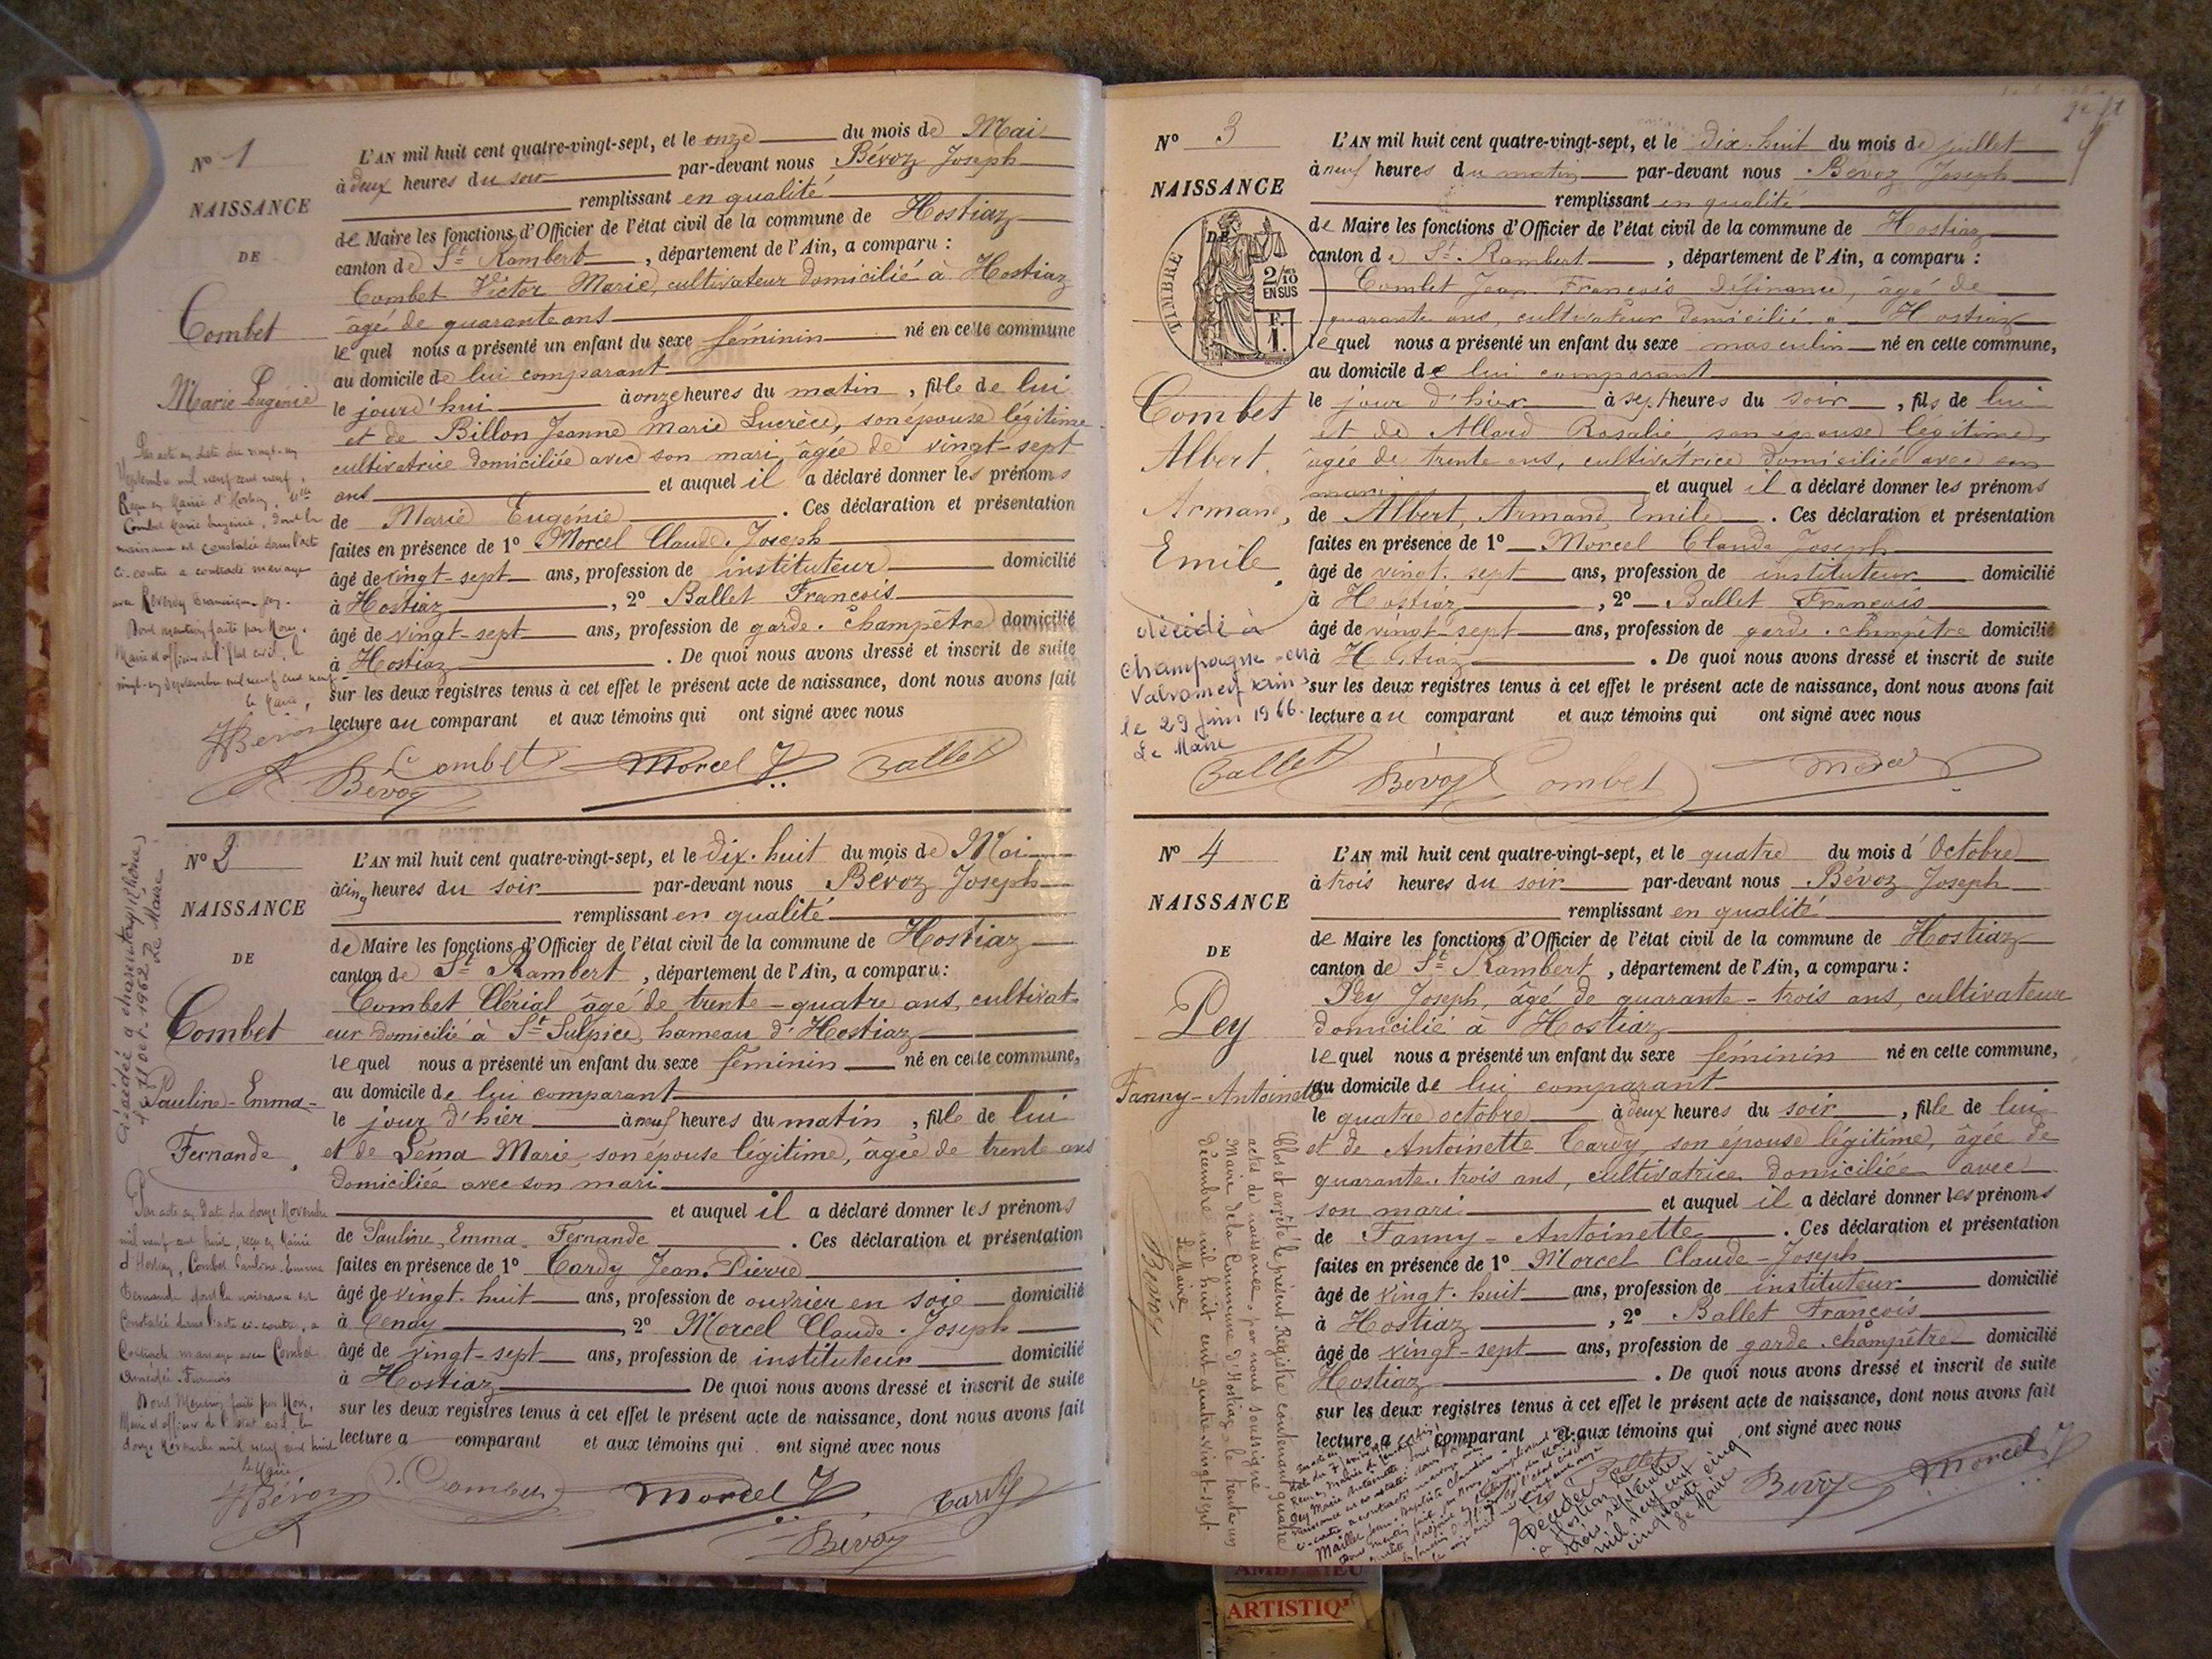 N° 1
NAISSANCE
DE
Combet
Marie Eugénie
L'AN mil huit cent quatre-vingt-sept, et le onze du mois de Mai
à deux heures du soir par-devant nous Bévoz Joseph
remplissant en qualité
de Maire les fonctions d'Officier de l'état civil de la commune de Hostiaz
canton de St Rambert, département de l'Ain, a comparu :
Combet Victor Marie, cultivateur domicilié à Hostiaz
âgé de quarante ans
lequel nous a présenté un enfant du sexe féminin né en cette commune
au domicile de lui comparant
le jourd'hui à onze heures du matin, fille de lui
et de Billon Jeanne Marie Lucrèce, son épouse légitime
cultivatrice domiciliée avec son mari, âgée de vingt-sept
ans et auquel il a déclaré donner les prénoms
de Marie Eugénie. Ces déclaration et présentation
faites en présence de 1° Morcel Claude Joseph
âgé de vingt-sept ans, profession de instituteur domicilié
à Hostiaz, 2° Ballet François
âgé de vingt-sept ans, profession de garde-champêtre domicilié
à Hostiaz. De quoi nous avons dressé et inscrit de suite
sur les deux registres tenus à cet effet le présent acte de naissance, dont nous avons fait
lecture au comparant et aux témoins qui ont signé avec nous
Par acte en date du vingt-un
Septembre mil neuf cent neuf,
Reçu en Mairie d'Hostiaz, Melle
Combet Marie Eugénie, dont la
naissance est constatée dans l'acte
ci-contre a contracté mariage
avec
Dont mention faite par Nous,
Maire et officier de l'Etat civil, le
vingt-un Septembre mil neuf cent neuf
Le Maire,
Bévoz
Combet Morcel J Ballet
Bévoz
N° 2
NAISSANCE
DE
Combet
Pauline-Emma-
Fernande
L'AN mil huit cent quatre-vingt-sept, et le dix-huit du mois de Mai
à cinq heures du soir par-devant nous Bévoz Joseph
remplissant en qualité
de Maire les fonctions d'Officier de l'état civil de la commune de Hostiaz
canton de St Rambert, département de l'Ain, a comparu :
Combet Clérial âgé de trente-quatre ans, cultivat-
eur domicilié à St Sulpice, hameau d'Hostiaz
lequel nous a présenté un enfant du sexe féminin né en cette commune,
au domicile de lui comparant
le jour d'hier à neuf heures du matin, fille de lui
et de Léma Marie, son épouse légitime, âgée de trente ans
domiciliée avec son mari
et auquel il a déclaré donner les prénoms
de Pauline, Emma, Fernande. Ces déclaration et présentation
faites en présence de 1° Cardy Jean-Pierre
âgé de vingt-huit ans, profession de ouvrier en soie domicilié
à Cenay, 2° Morcel Claude-Joseph
âgé de vingt-sept ans, profession de instituteur domicilié
à Hostiaz De quoi nous avons dressé et inscrit de suite
sur les deux registres tenus à cet effet le présent acte de naissance, dont nous avons fait
lecture a comparant et aux témoins qui ont signé avec nous
le 11 oct. 1962 Le Maire
Par acte en date du douze Novembre
mil neuf cent huit, reçu en Mairie
d'Hostiaz, Combet Pauline Emma
Fernande dont la naissance est
constatée dans l'acte ci-contre, a
contracté mariage avec Combet
Amédée François
Dont Mention faite par Nous,
Maire et officier de l'état civil, le
douze Novembre mil neuf cent huit
Le Maire
Bévoz
Combet Morcel J Cardy
Bévoz
N° 3
NAISSANCE
DE
TIMBRE
2/10
EN SUS
F.
1.
Combet
Albert,
Armand,
Emile,
L'AN mil huit cent quatre-vingt-sept, et le dix-huit du mois de juillet
à neuf heures du matin par-devant nous Bévoz Joseph
remplissant en qualité
de Maire les fonctions d'Officier de l'état civil de la commune de Hostiaz
canton de St Rambert, département de l'Ain, a comparu :
Combet Jean François, âgé de
quarante ans, cultivateur domicilié à Hostiaz
lequel nous a présenté un enfant du sexe masculin né en cette commune,
au domicile de lui comparant
le jour d'hier à sept heures du soir, fils de lui
et de Allard Rosalie, son épouse légitime,
âgée de trente ans, cultivatrice domiciliée avec son
mari et auquel il a déclaré donner les prénoms
de Albert, Armand, Emile. Ces déclaration et présentation
faites en présence de 1° Morcel Claude Joseph
âgé de vingt-sept ans, profession de instituteur domicilié
à Hostiaz, 2° Ballet François
âgé de vingt-sept ans, profession de garde-champêtre domicilié
à Hostiaz. De quoi nous avons dressé et inscrit de suite
sur les deux registres tenus à cet effet le présent acte de naissance, dont nous avons fait
lecture au comparant et aux témoins qui ont signé avec nous
décédé à
Champagne-en
Valromey
le 29 juin 1966.
Le Maire
Ballet Bévoz Combet Morcel
N° 4
NAISSANCE
DE
Pey
Fanny-Antoinette
L'AN mil huit cent quatre-vingt-sept, et le quatre du mois d'Octobre
à trois heures du soir par-devant nous Bévoz Joseph
remplissant en qualité
de Maire les fonctions d'Officier de l'état civil de la commune de Hostiaz
canton de St Rambert, département de l'Ain, a comparu :
Pey Joseph, âgé de quarante-trois ans, cultivateur
domicilié à Hostiaz
lequel nous a présenté un enfant du sexe féminin né en cette commune,
au domicile de lui comparant
le quatre octobre à deux heures du soir, fille de lui
et de Antoinette Cardy, son épouse légitime, âgée de
quarante-trois ans, cultivatrice domiciliée avec
son mari et auquel il a déclaré donner les prénoms
de Fanny-Antoinette. Ces déclaration et présentation
faites en présence de 1° Morcel Claude-Joseph
âgé de vingt-huit ans, profession de instituteur domicilié
à Hostiaz, 2° Ballet François
âgé de vingt-sept ans, profession de garde-champêtre domicilié
Hostiaz. De quoi nous avons dressé et inscrit de suite
sur les deux registres tenus à cet effet le présent acte de naissance, dont nous avons fait
lecture a comparant et aux témoins qui ont signé avec nous
Clos et arrêté le présent Registre contenant quatre
actes de naissance, par nous soussigné
Maire de la Commune d'Hostiaz, le trente-un
décembre mil huit cent quatre-vingt-sept
Le Maire
Bévoz
Décédée
à Hostiaz le
trois septembre
mil neuf cent
cinquante cinq
Le Maire
Ballet Bévoz Morcel J
AMBERIEU
ARTISTIQ